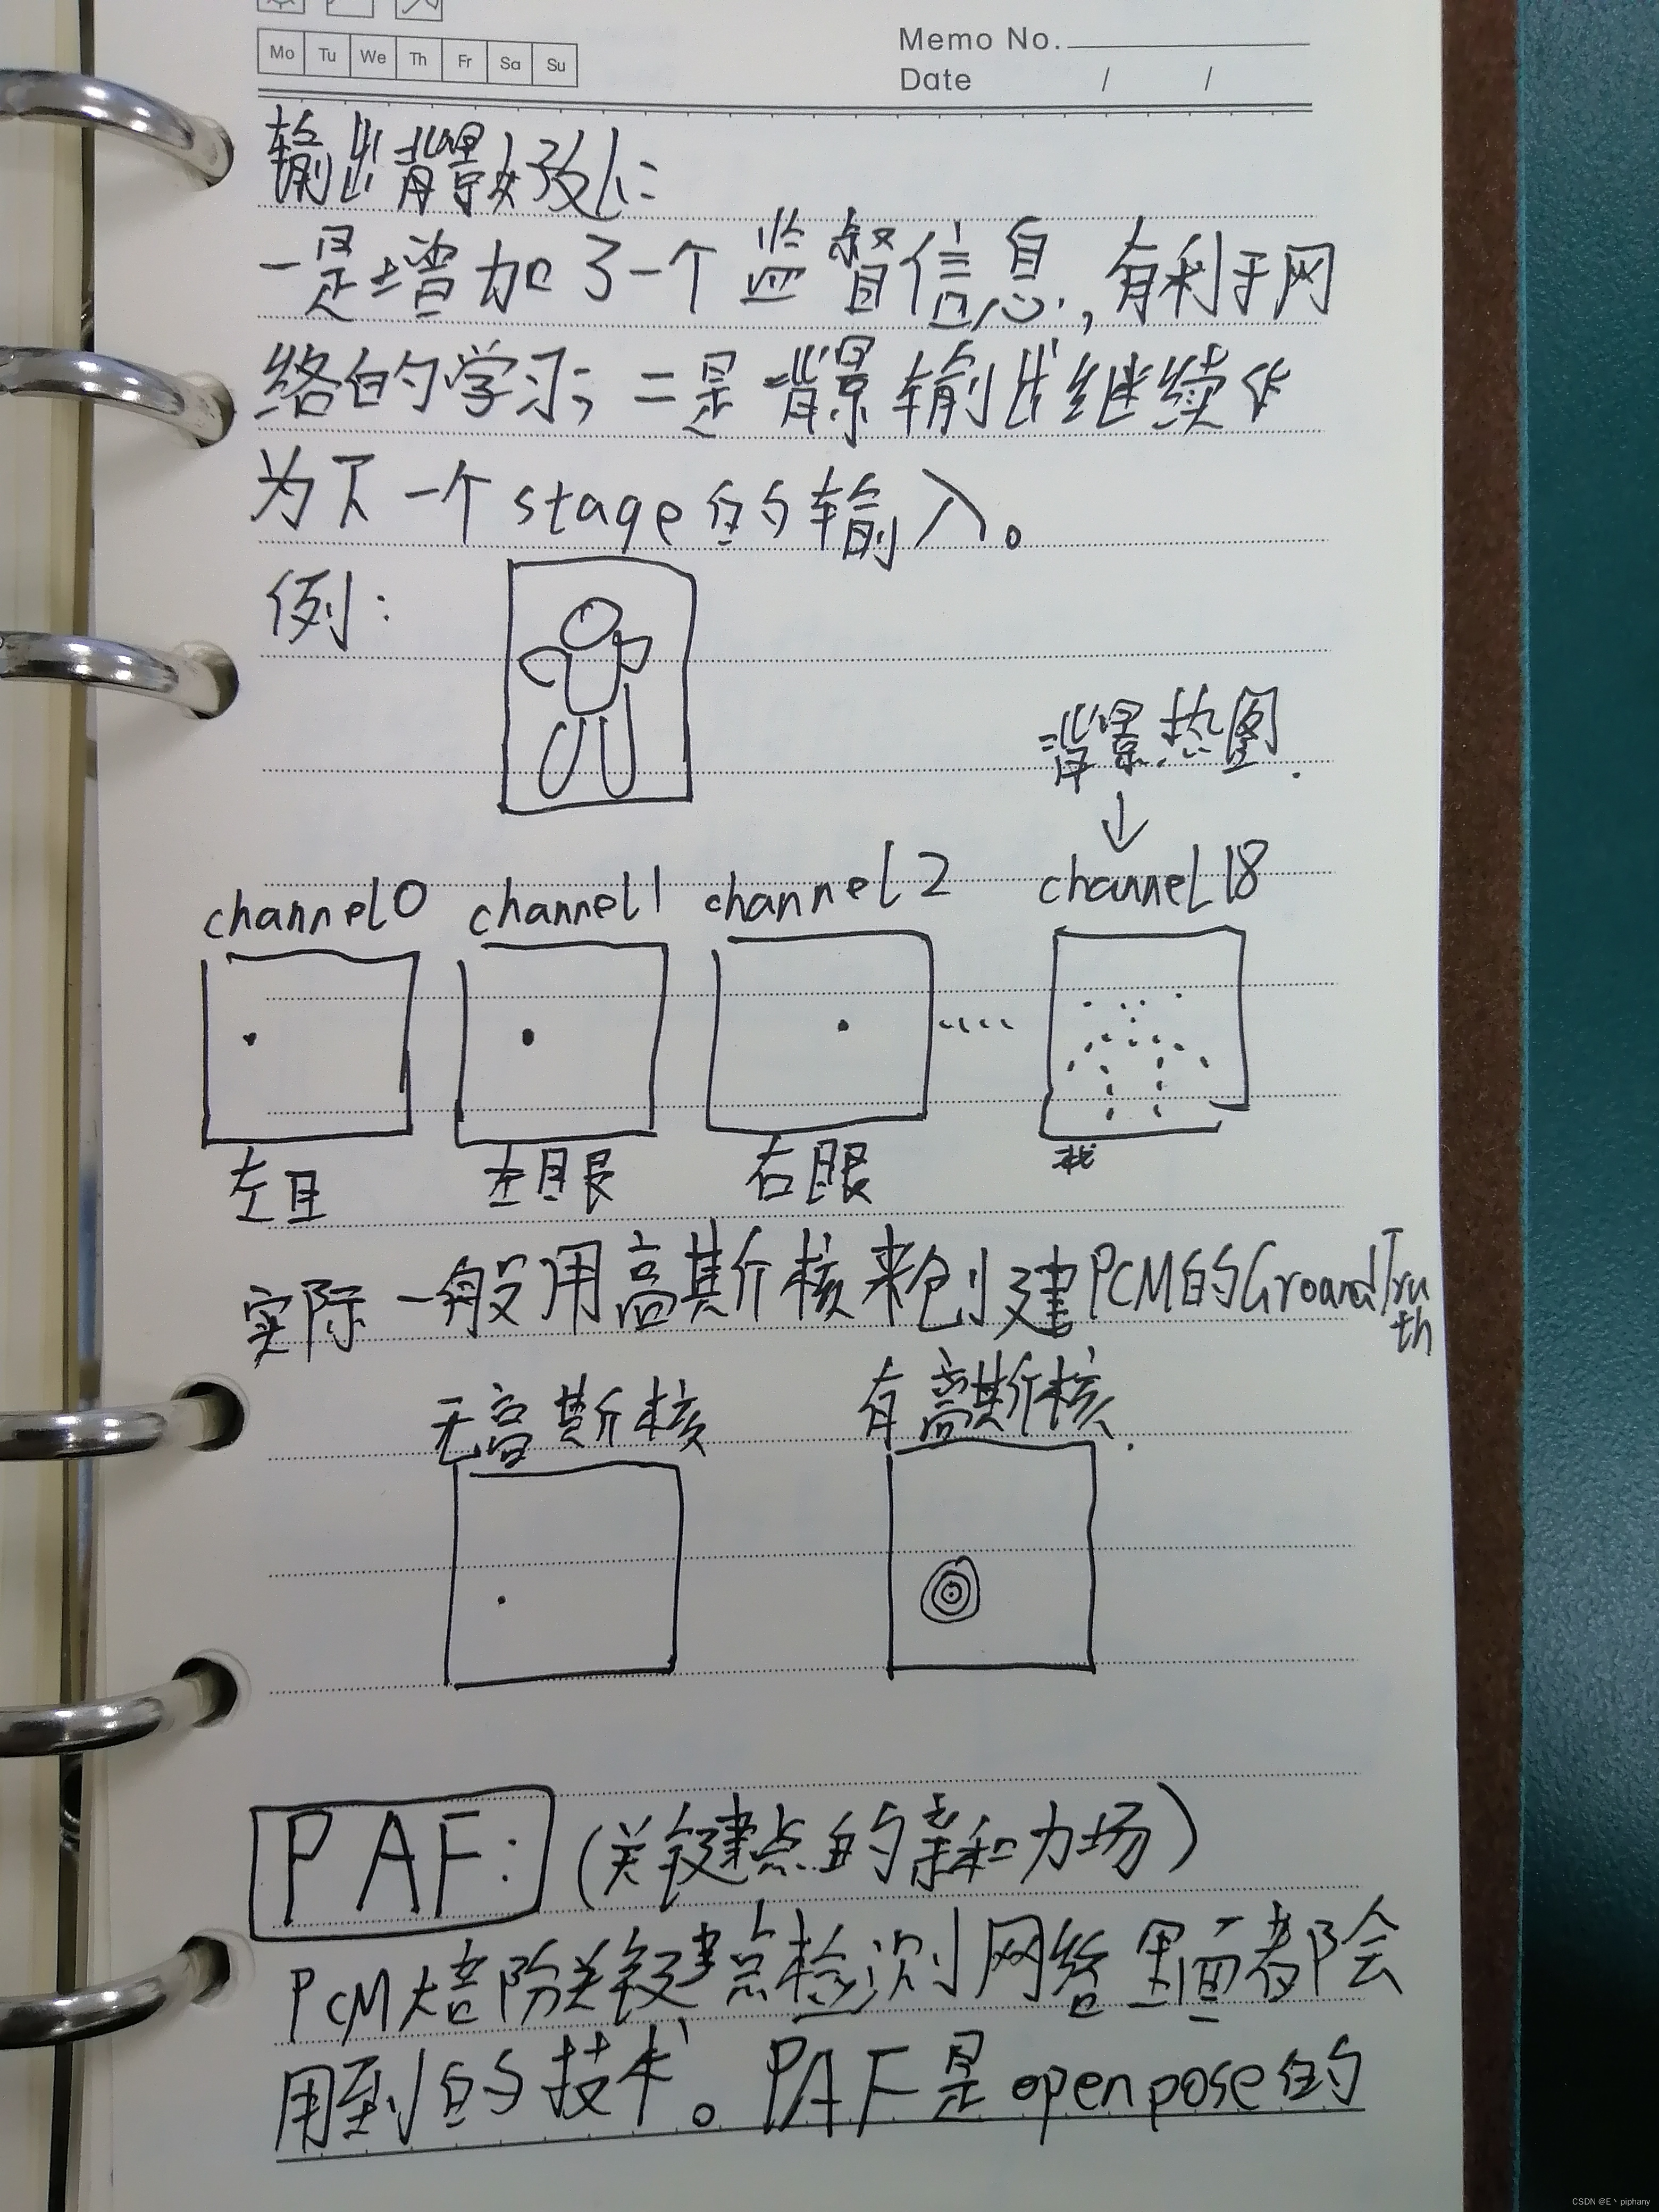 Mo Tu We Th Fr Sa Su
Memo No.
Date / /
输出背景好处:
一是增加了一个监督信息,有利于网
络的学习;二是背景输出继续作
为下一个stage的输入。
例:
背景热图.
↓
channel0 channel1 channel2 channel18
....
左耳 左眼 右眼
实际一般用高斯核来创建PCM的GroundTru
th
无高斯核 有高斯核.
PAF: (关键点的亲和力场)
PCM大部分关键点检测网络里面都会
用到的技术。PAF是openpose的
CSDN @E丶piphany